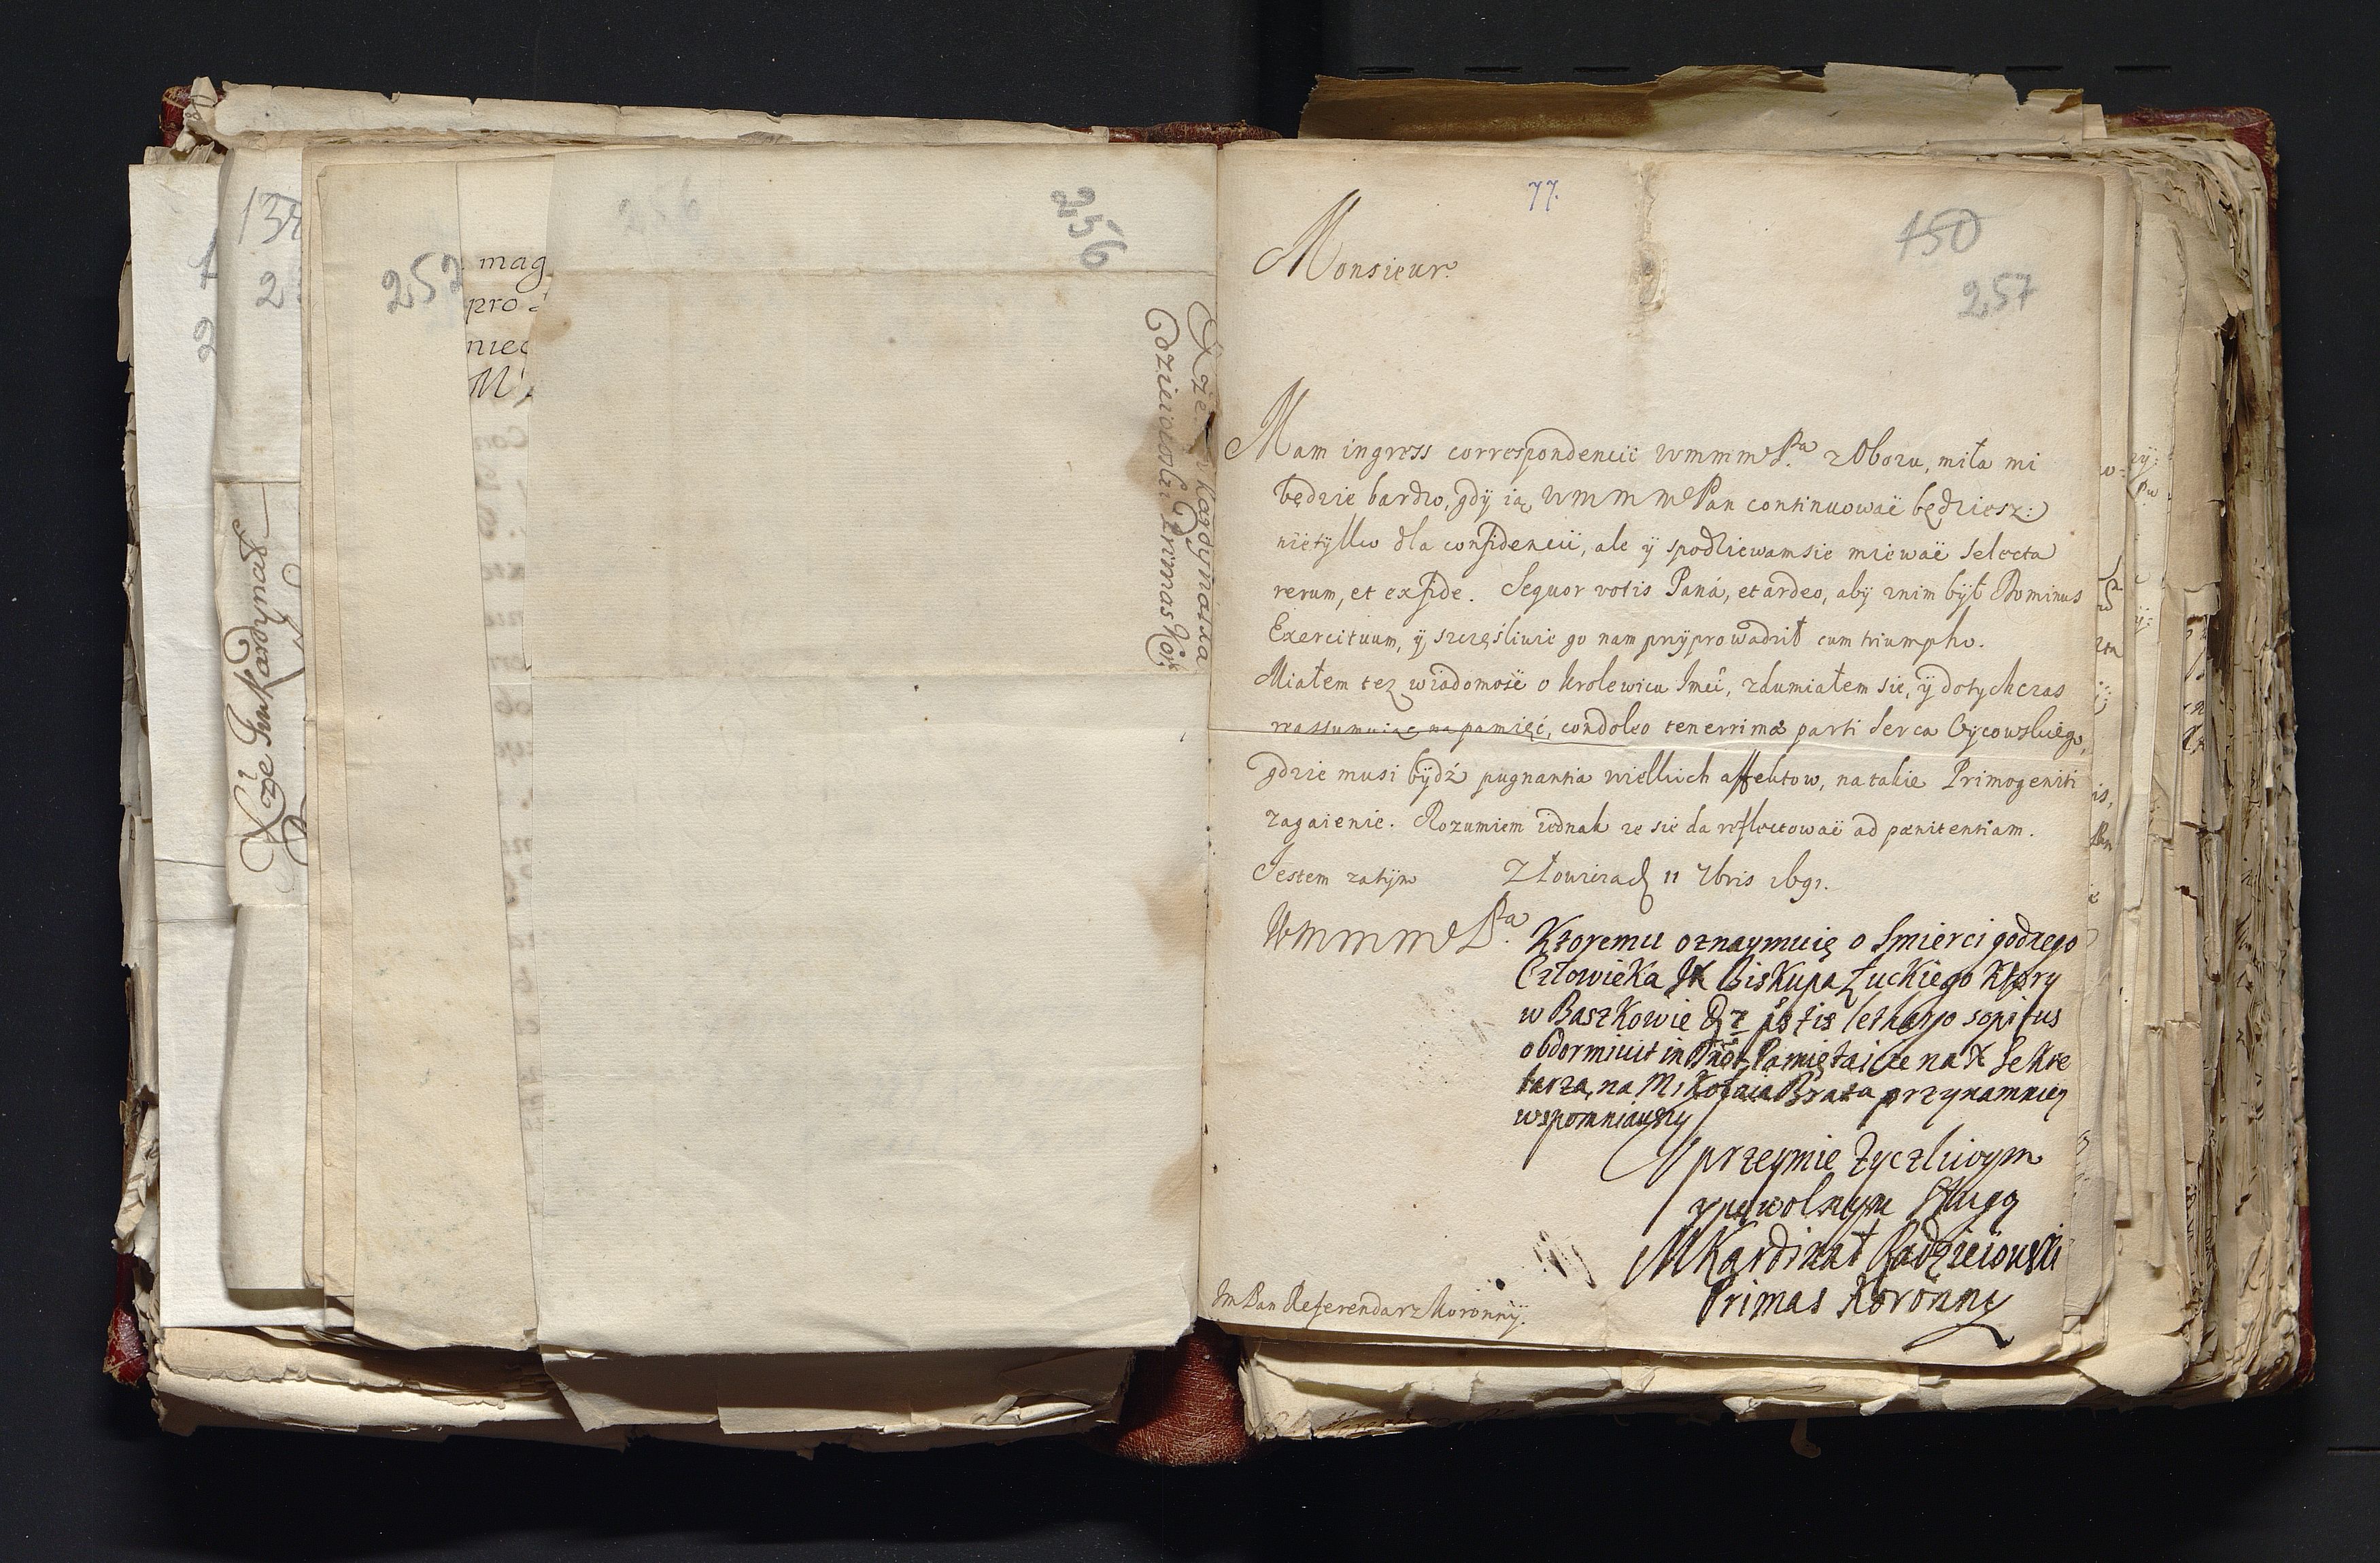 137
252
mag
pro
256
Xże Jmć Kardynał
Xże Kardynał
Radzieiowski Primas Kor:
77.
150
257
Monsieur.
Mam ingress correspondencii WmmmP.ⁿᵃ z Obozu, miła mi
będzie bardzo, gdÿ ią WmmmPan continuowač będziesz:
nietylko dla confidencii, ale ÿ spodziewamsie miewač selecta
rerum, et ex fide. Sequor votis Paná, et ardeo, abÿ znim bÿł Dominus
Exercituum, ÿ szczęśliwie go nam przÿprowadził cum triumpho.
Miałem tez wiadomość o krolewicu Jmći, zdumiałem sie, ÿ dotychczas
reassumuiąc na pamięć, condoleo tenerrimæ parti serca Oycowskiego,
gdzie musi bÿdź pugnantia wielkich affektow, na takie Primogeniti
zagaienie. Rozumiem iednak ze sie da reflectowač ad pænitentiam.
Jestem zatÿm Z Łowicza d 11 7bris 1691.
WmmmP.ⁿᵃ
Ktoremu oznaymuię o smierci godnego
Człowieka JX Biskupa Łuckiego Ktory
w Baszkowie d 7 istis lethargo sopitus
obdormiuit in Dno. Pamiętaicie na X Sekre
tarza, na Mikołaia Brata przynamniey
wspomniawszy
Uprzeymie Życzliwym
y powolnym sługą
MKardinał Radzieiowski
Primas Koronny
Jm Pan Referendarz Koronnÿ.